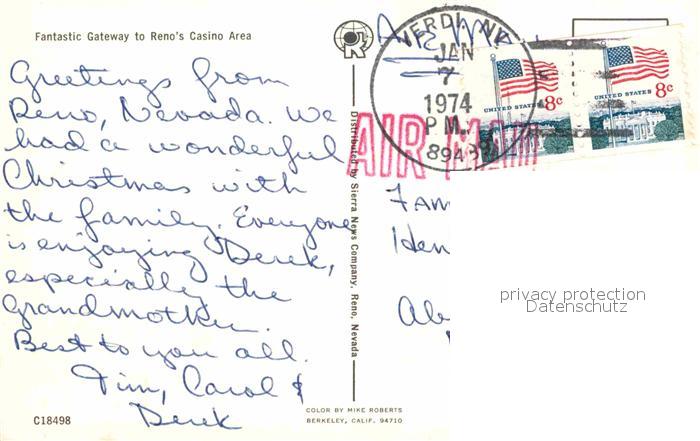 Fantastic Gateway to Reno's Casino Area
Greetings from
Reno, Nevada. We
had a wonderful
Christmas with
the family. Everyone
is enjoying Derek,
especially the
Grandmother.
Best to you all.
Tim, Carol &
Derek
C18498
Distributed by Sierra News Company, Reno, Nevada
COLOR BY MIKE ROBERTS
BERKELEY, CALIF. 94710
VERDI, NV.
JAN
7
1974
P M
89439
AIR MAIL
UNITED STATES 8c
UNITED STATES 8c
Fam
Hen
Ab
privacy protection
Datenschutz